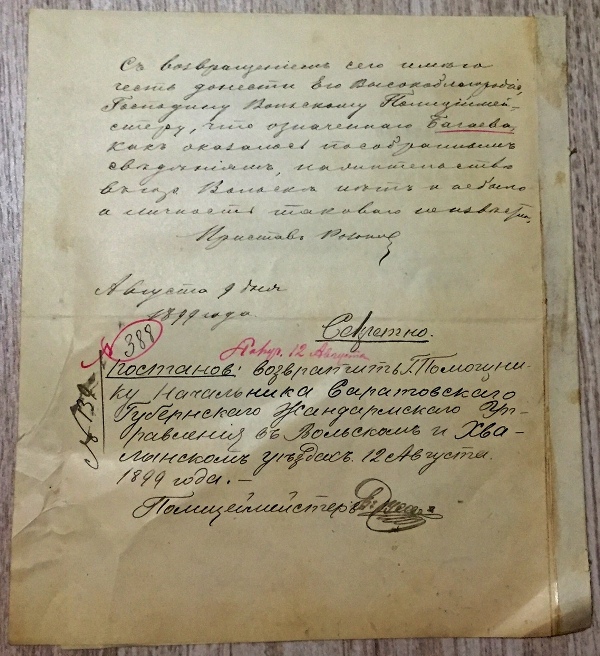 Съ возвращеніемъ сего имѣю
честь донести Его Высокоблагородію,
Господину Вольскому Полиціймей-
стеру, что означеннаго Багаева,
какъ оказалось по собраннымъ
свѣденіямъ, на жительство
въ гор. Вольскѣ нѣтъ и не было
и личность таковаго неизвѣстна.
Приставъ
Августа 9 дня
1899 года.
Секретно.
№ 388
12 Августа
Постанов: возвратить Г. Помощни-
ку Начальника Саратовскаго
Губернскаго Жандармскаго Уп-
равленія въ Вольскомъ и Хва-
лынскомъ уѣздахъ. 12 Августа
1899 года.-
Полицеймейстеръ